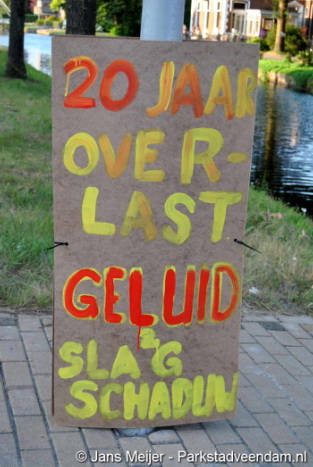 20 JAAR
OVER-
LAST
GELUID
&
SLAG
SCHADUW
© Jans Meijer - Parkstadveendam.nl